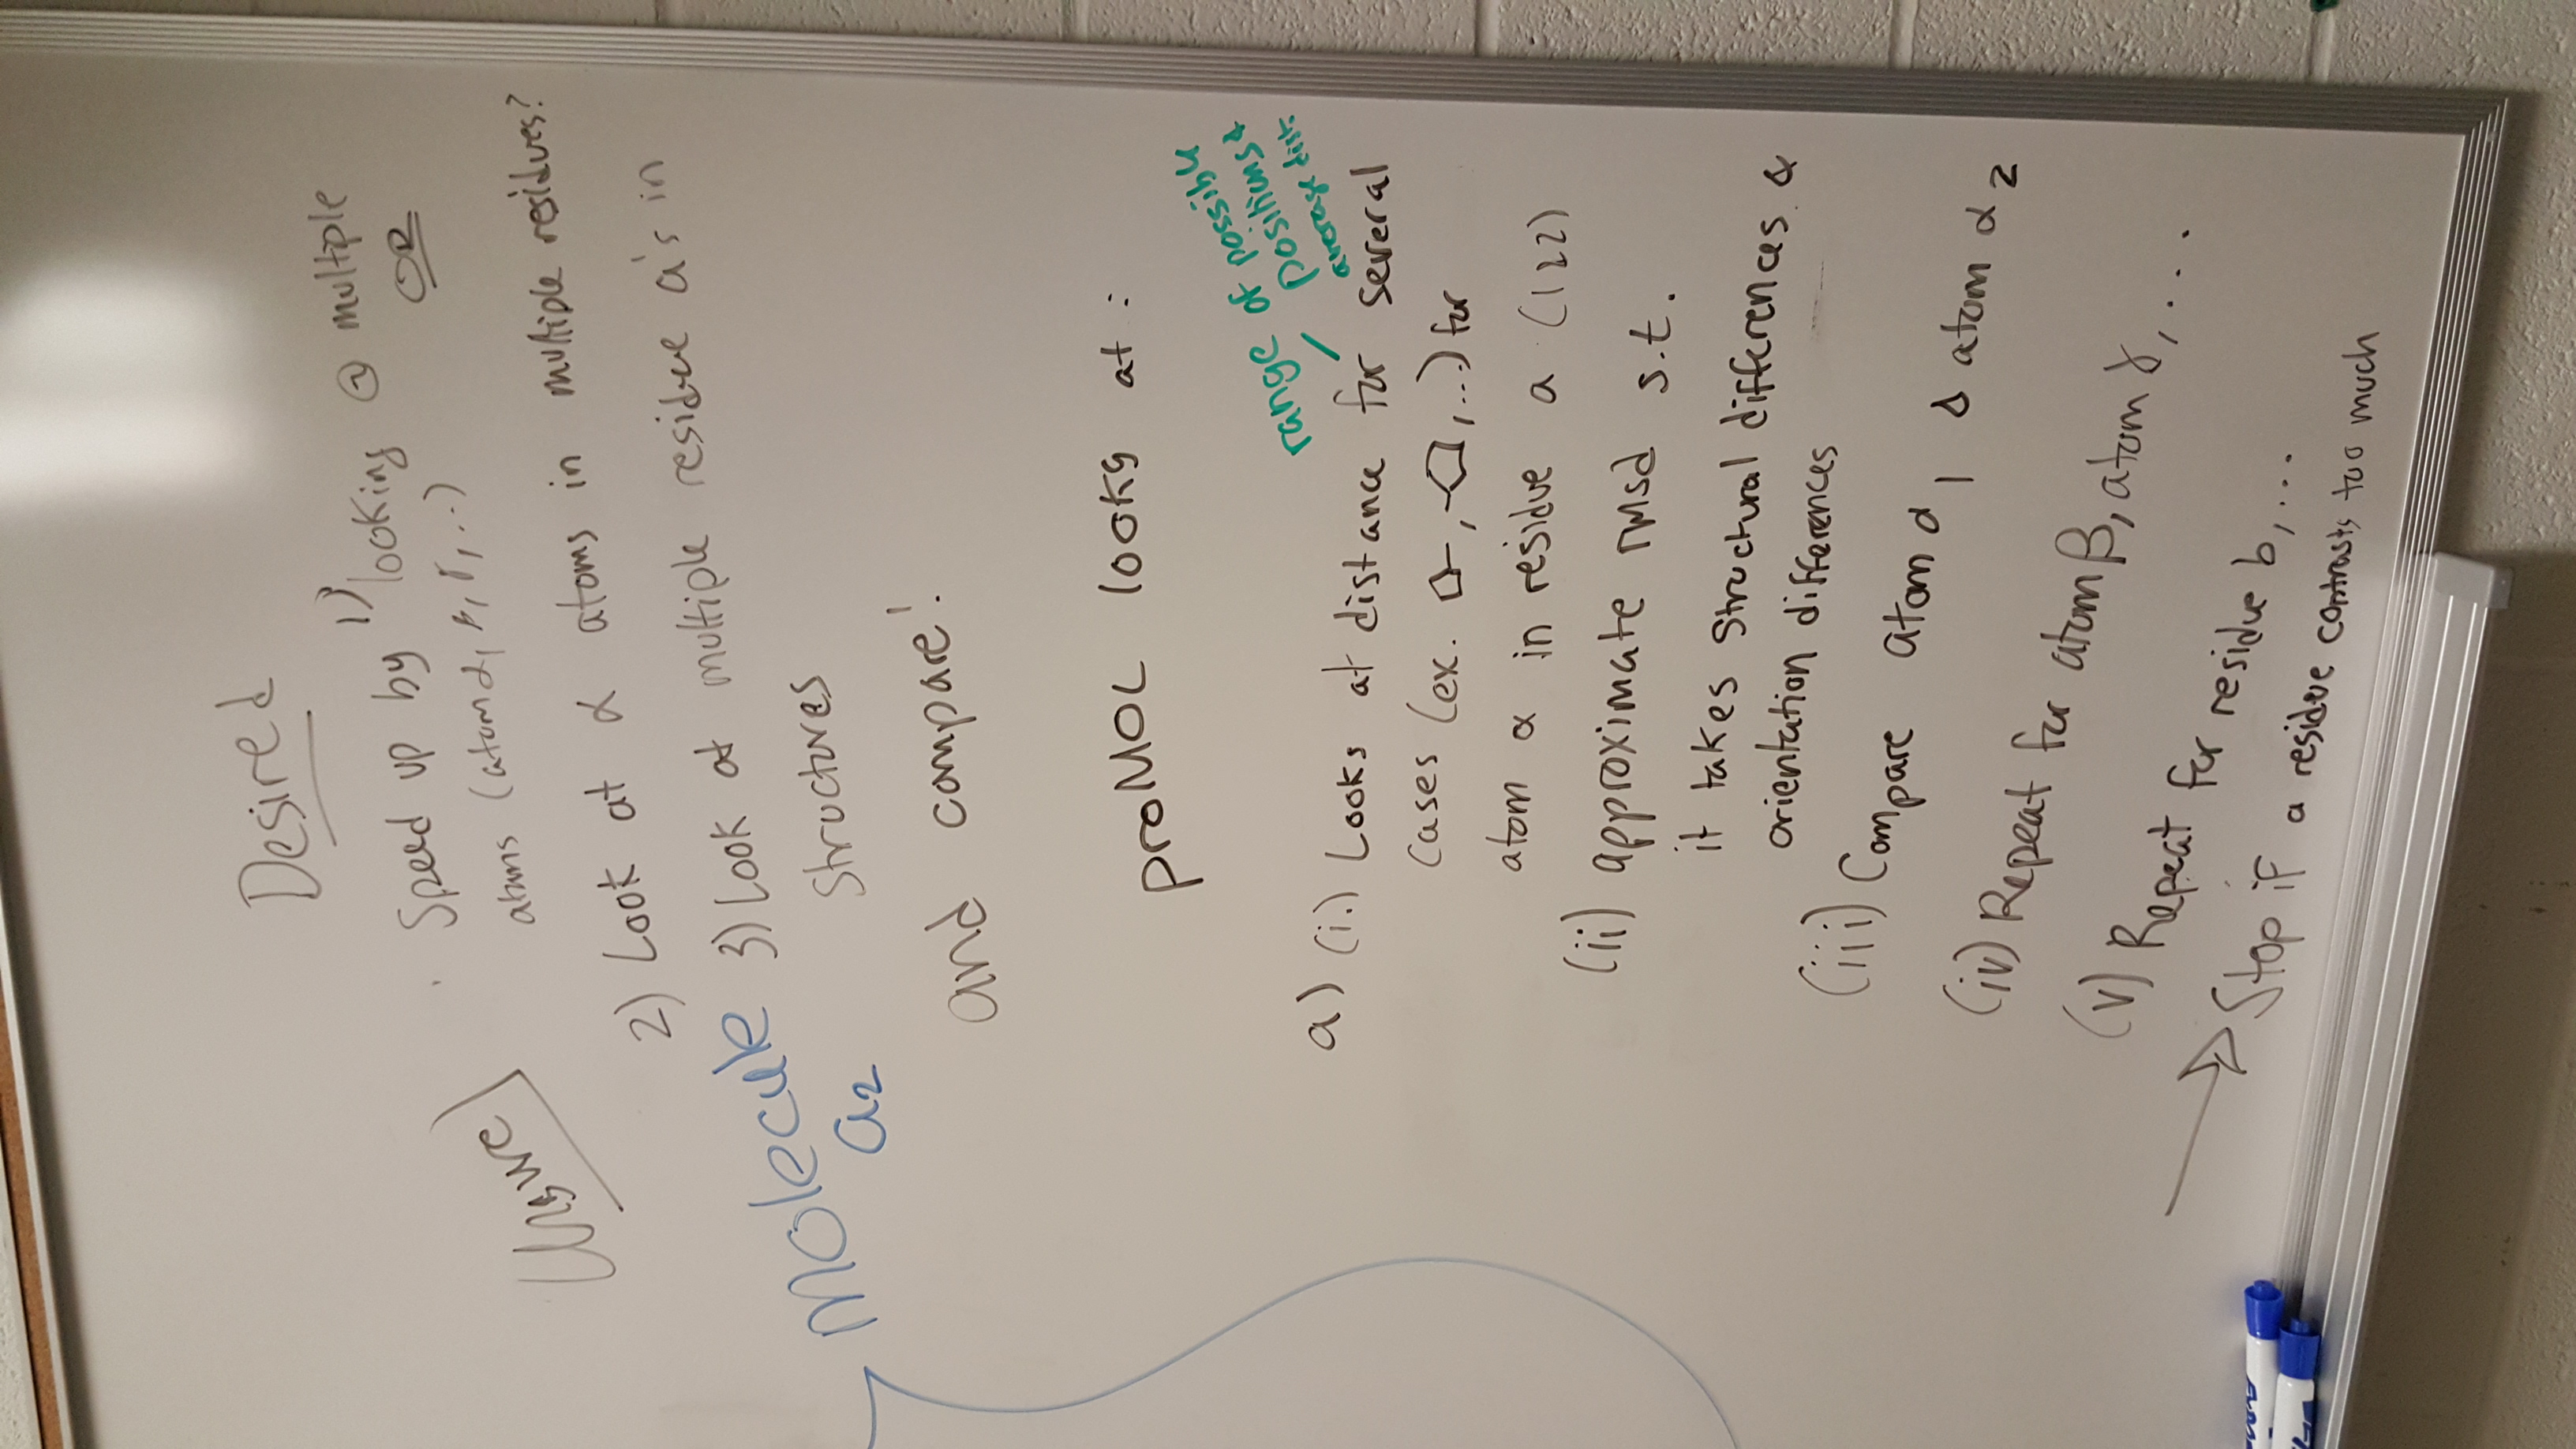 Desired
Unsure
· Speed up by 1) looking @ multiple
atoms (atom α, β, γ, ...) OR
2) Look at α atoms in multiple residues?
3) Look at multiple residue a's in
structures
Molecule
a2
and compare!
proMOL looks at :
range of possible
positions &
average dist.
a) (i.) Looks at distance for several
cases (ex. , , ...) for
atom α in residue a (122)
(ii) approximate rmsd s.t.
it takes structural differences &
orientation differences
(iii) Compare atom α1 & atom α2
(iv) Repeat for atom β, atom γ, ...
(v) Repeat for residue b, ...
Stop if a residue contrasts too much